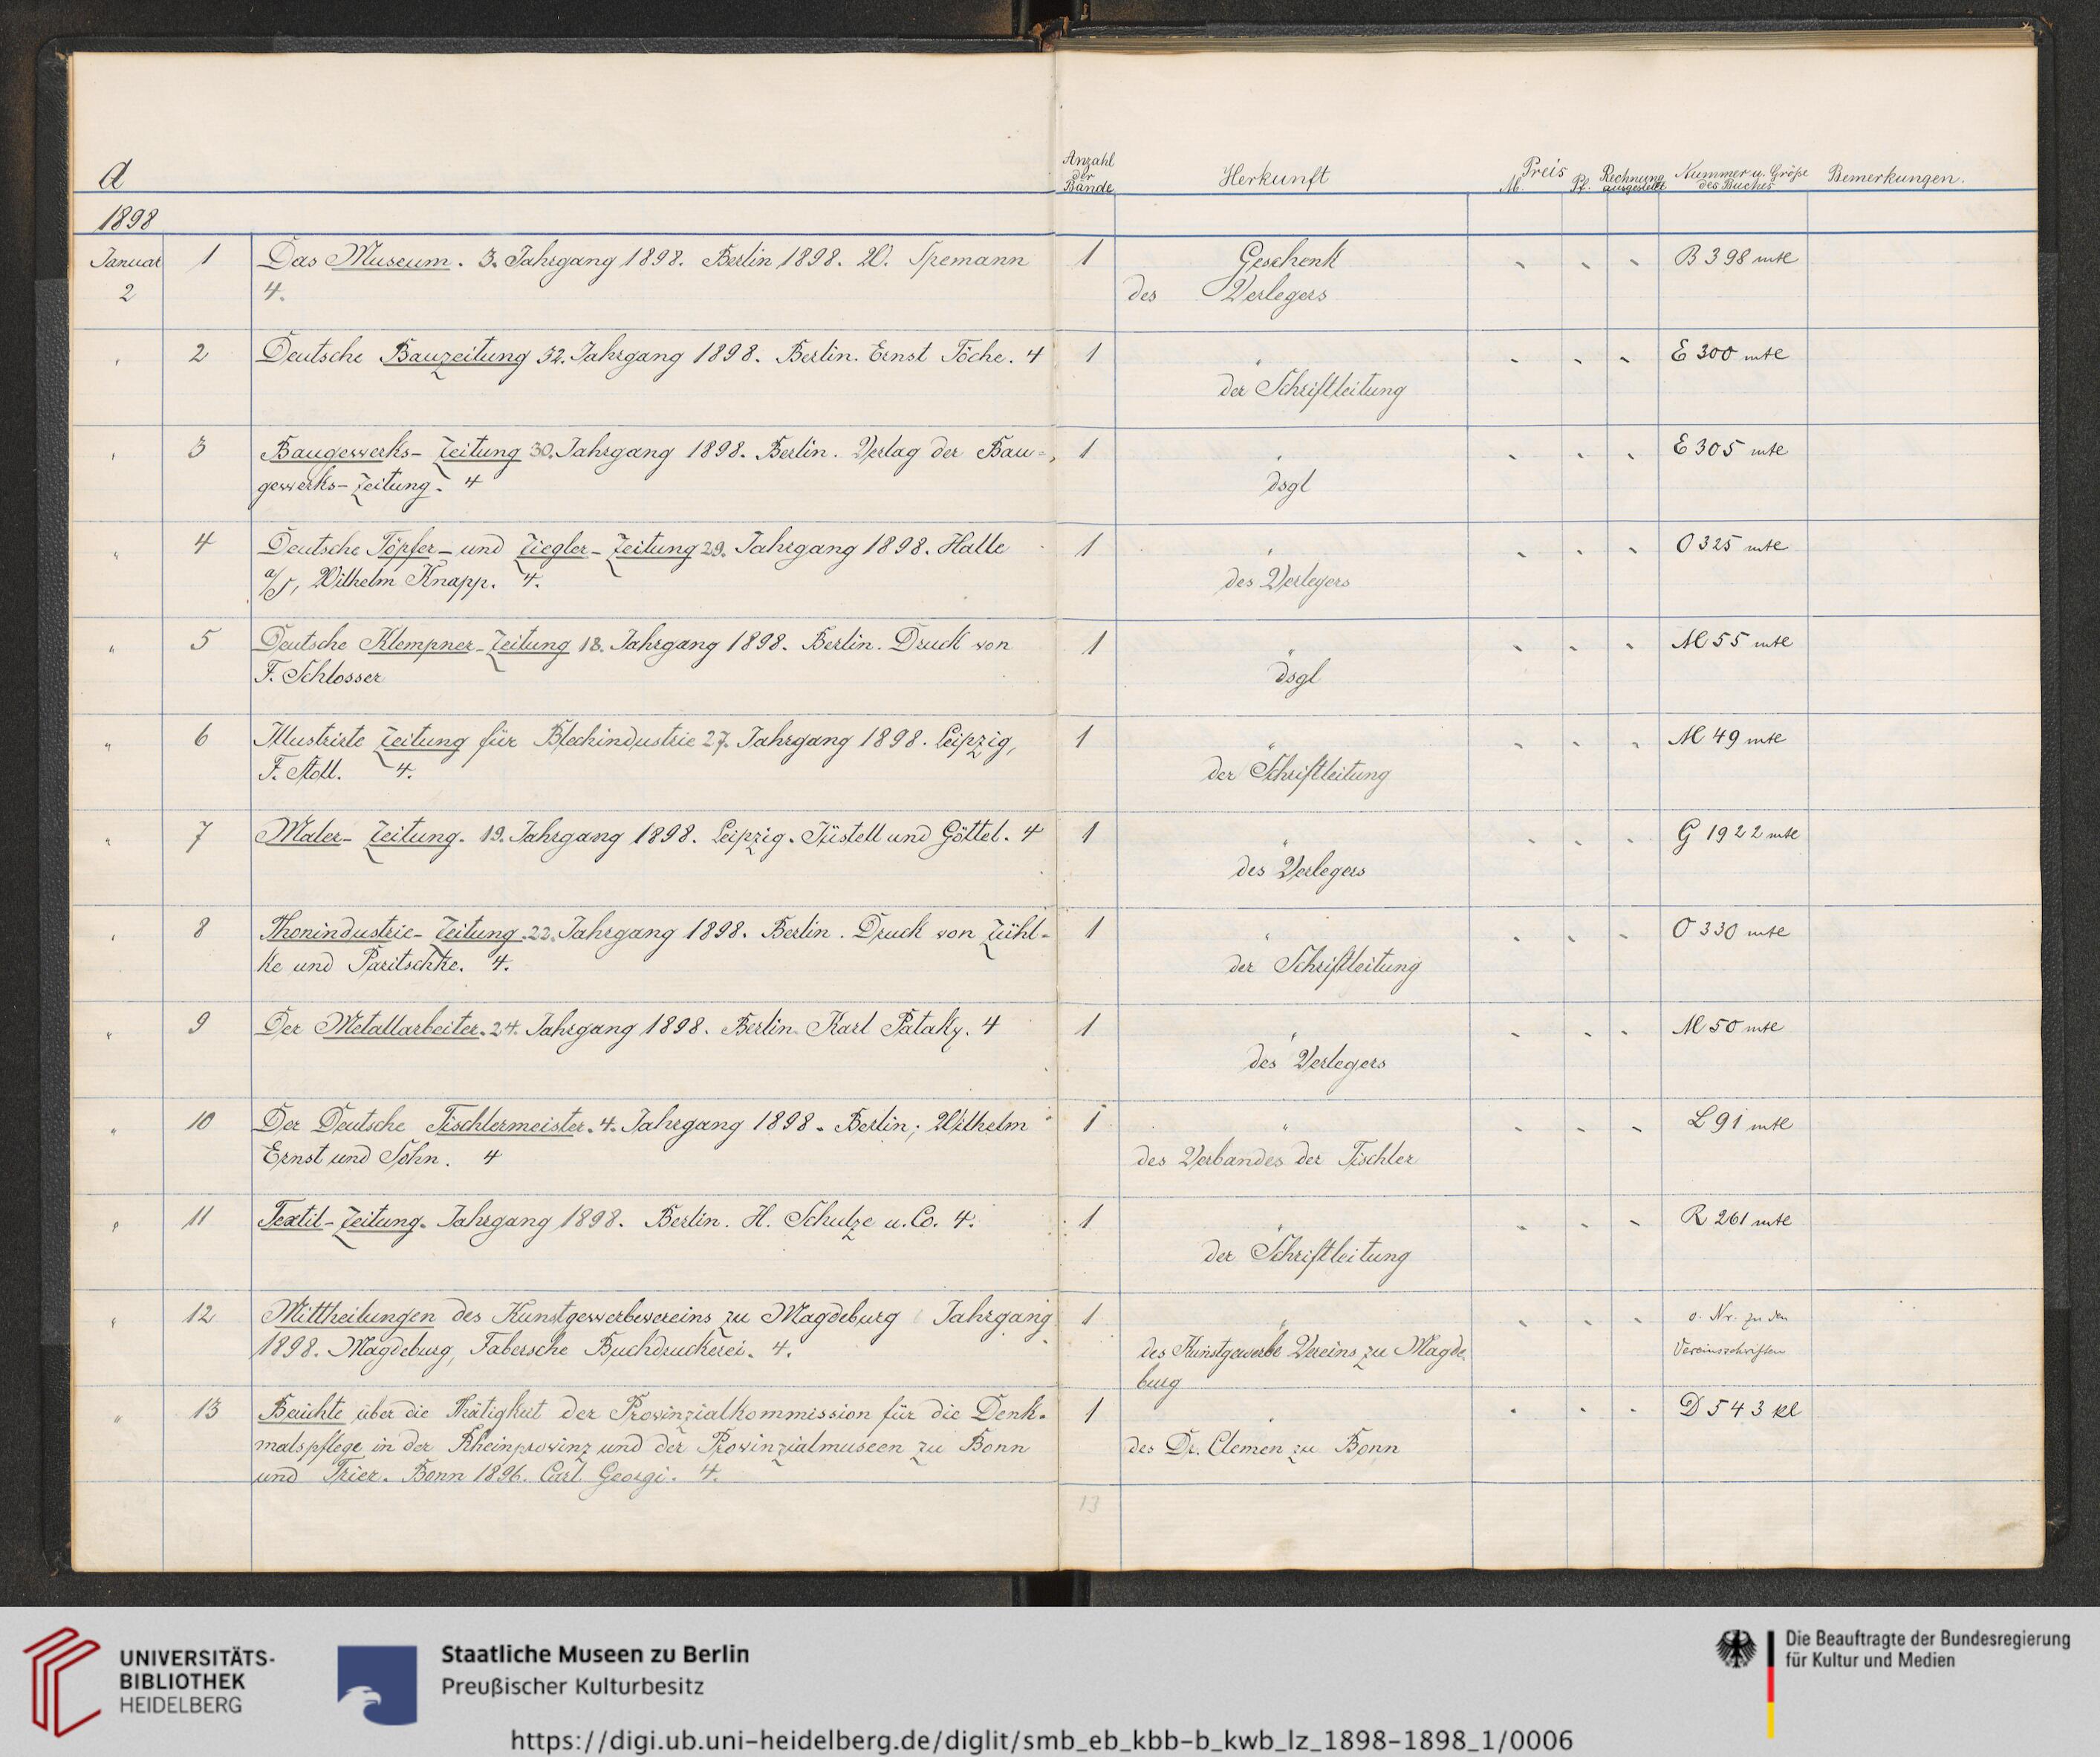 a
Anzahl der Bände Herkunft Preis M. Pf. Rechnung ausgestellt Nummer u. Größe des Buches Bemerkungen.
1898
Januar 1 Das Museum. 3. Jahrgang 1898. Berlin 1898. W. Spemann 1 Geschenk - - - B 398 mtl
2 4. des Verlegers
" 2 Deutsche Bauzeitung 32. Jahrgang 1898. Berlin. Ernst Töche. 4 1 " - - - E 300 mtl
der Schriftleitung
" 3 Baugewerks-Zeitung 30. Jahrgang 1898. Berlin. Verlag der Bau- 1 " - - - E 305 mtl
gewerks-Zeitung. 4 dsgl
" 4 Deutsche Töpfer- und Ziegler-Zeitung 29. Jahrgang 1898. Halle 1 " - - - O 325 mtl
a/S, Wilhelm Knapp. 4. des Verlegers
" 5 Deutsche Klempner-Zeitung 18. Jahrgang 1898. Berlin. Druck von 1 " - - - M 55 mtl
F. Schlosser dsgl
" 6 Illustrirte Zeitung für Blechindustrie 27. Jahrgang 1898. Leipzig, 1 " - - - M 49 mtl
F. Stoll. 4. der Schriftleitung
" 7 Maler-Zeitung. 19. Jahrgang 1898. Leipzig. Jüstell und Göttel. 4 1 " - - - G 1922 mtl
des Verlegers
" 8 Thonindustrie-Zeitung. 22. Jahrgang 1898. Berlin. Druck von Zühl- 1 " - - - O 330 mtl
ke und Paritschke. 4. der Schriftleitung
" 9 Der Metallarbeiter. 24. Jahrgang 1898. Berlin. Karl Pataky. 4 1 " - - - M 50 mtl
des Verlegers
" 10 Der Deutsche Tischlermeister. 4. Jahrgang 1898. Berlin; Wilhelm 1 " - - - L 91 mtl
Ernst und Sohn. 4 des Verbandes der Tischler
" 11 Textil-Zeitung. Jahrgang 1898. Berlin. H. Schulze u. Co. 4. 1 " - - - R 261 mtl
der Schriftleitung
" 12 Mittheilungen des Kunstgewerbevereins zu Magdeburg Jahrgang 1 " - - - o. Nr. zu den
1898. Magdeburg, Fabersche Buchdruckerei. 4. des Kunstgewerbe Vereins zu Magde Vereinsschriften
burg
" 13 Berichte über die Thätigkeit der Provinzialkommission für die Denk- 1 " - - - D 543 kl
malspflege in der Rheinprovinz und der Provinzialmuseen zu Bonn des Dr. Clemen zu Bonn
und Trier. Bonn 1896. Carl Georgi. 4.
13
UNIVERSITÄTS-
BIBLIOTHEK
HEIDELBERG
Staatliche Museen zu Berlin
Preußischer Kulturbesitz
Die Beauftragte der Bundesregierung
für Kultur und Medien
https://digi.ub.uni-heidelberg.de/diglit/smb_eb_kbb-b_kwb_lz_1898-1898_1/0006